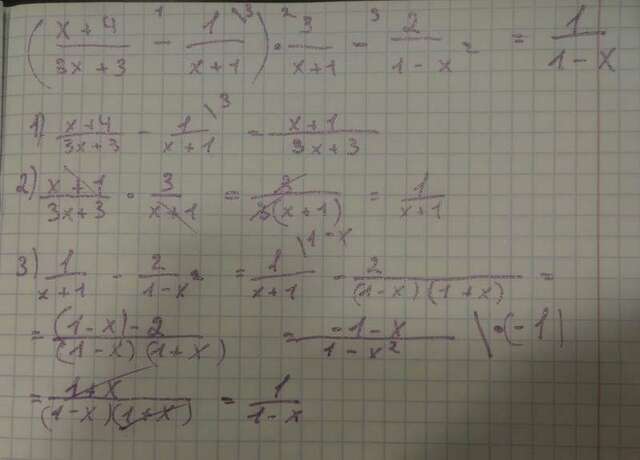 ( (x+4)/(3x+3) ¹ - 1/(x+1) \3 ) ·² 3/(x+1) -³ 2/(1-x) = = 1/(1-x)
1) (x+4)/(3x+3) - 1/(x+1) \3 = (x+1)/(3x+3)
2) (x+1)/(3x+3) · 3/(x+1) = 3/(3(x+1)) = 1/(x+1)
3) 1/(x+1) - 2/(1-x) = = 1/(x+1) \1-x - 2/((1-x)(1+x)) =
= ((1-x)-2)/((1-x)(1+x)) = (-1-x)/(1-x²) \·(-1)
= (1+x)/((1-x)(1+x)) = 1/(1-x)